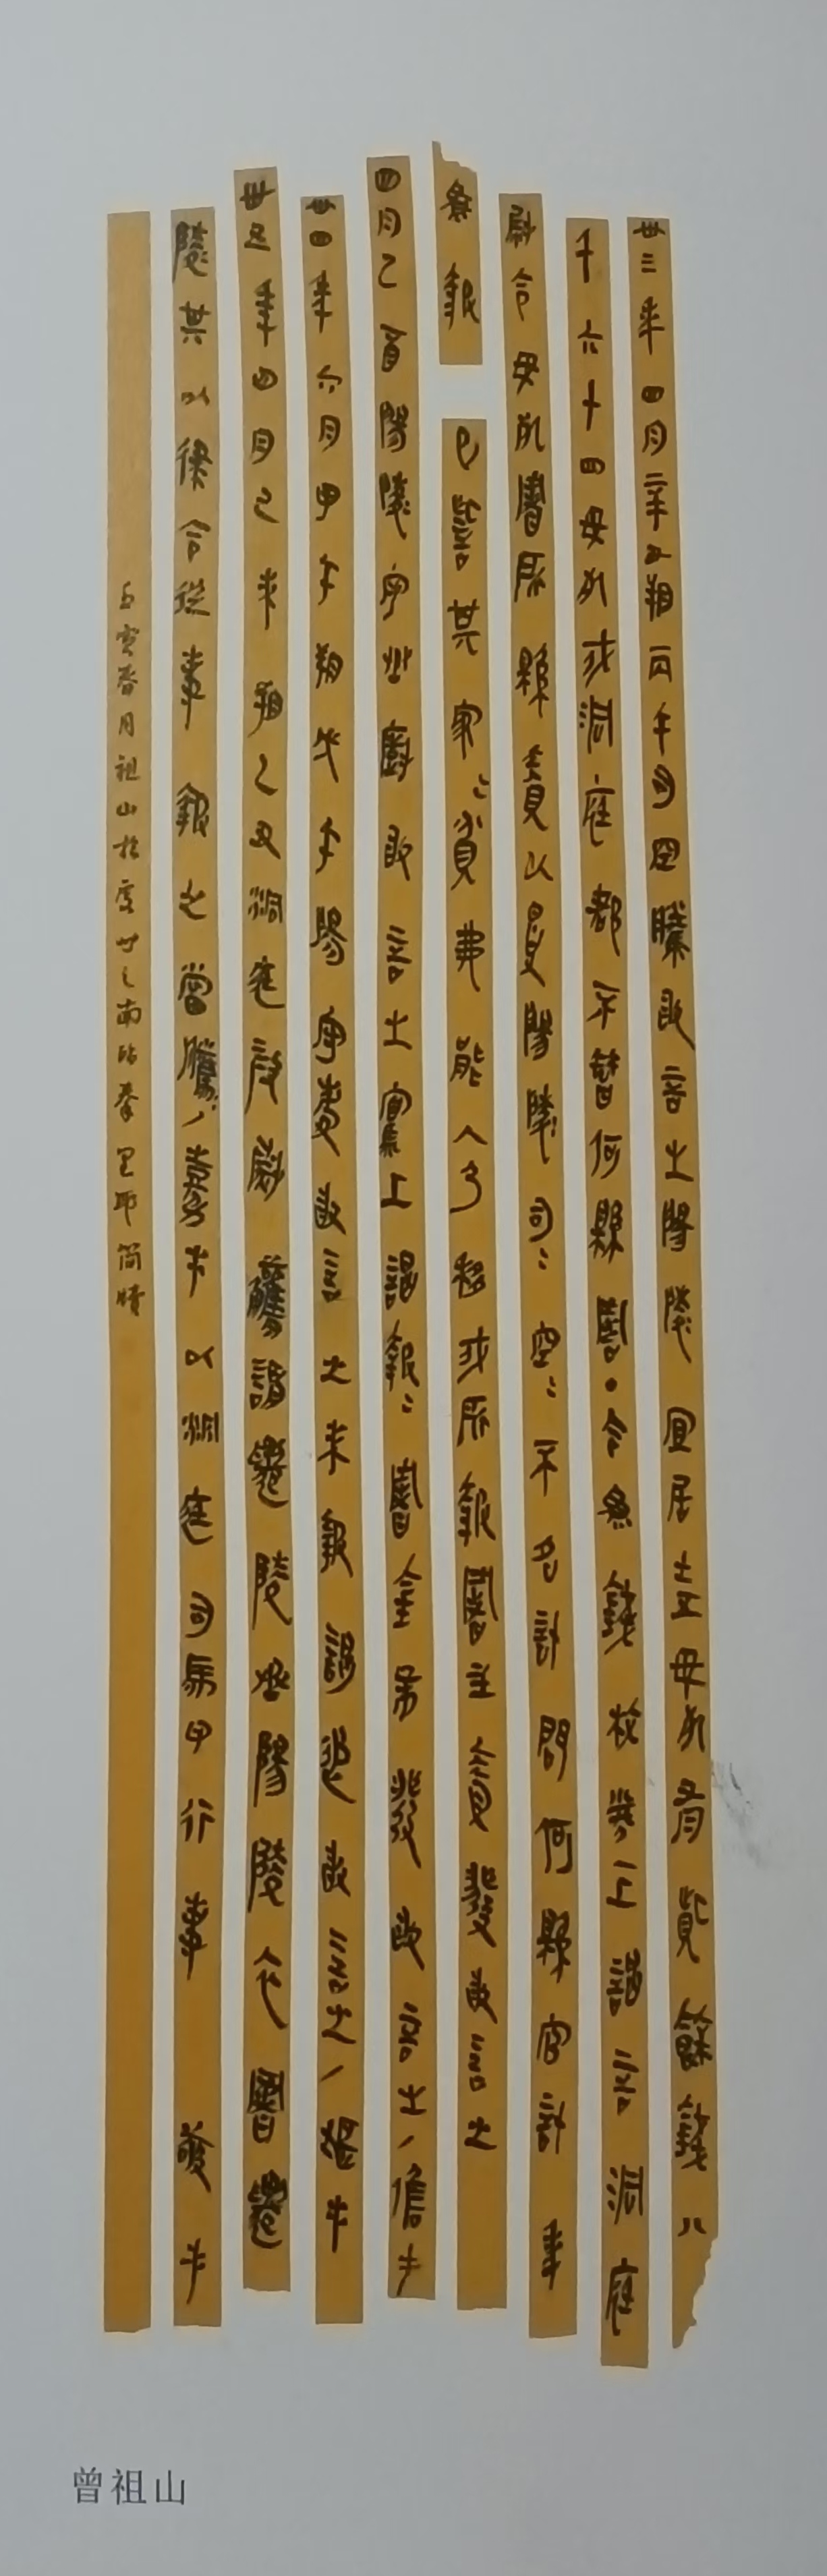 卅三年四月辛丑朔丙午司空騰敢言之陽陵宜居士五毋死有貲餘錢八
千六十四毋死戍洞庭郡不智何縣署·今為錢校券一上謁言洞庭
尉令毋死署所縣責以受陽陵司=空=不名計問何縣官計年
為報已訾其家=貧弗能入乃移戍所報署主責發敢言之
四月己酉陽陵守丞廚敢言之寫上謁報=署金布發敢言之/儋手
卅四年六月甲午朔戊午陽守慶敢言之未報謁追敢言之/堪手
卅五年四月己未朔乙丑洞庭叚尉觿謂遷陵丞陽陵卒署遷
陵其以律令從事報之當騰=/嘉手以洞庭司馬印行事敬手
壬寅春月祖山於虔之南臨秦里耶簡牘
曾祖山